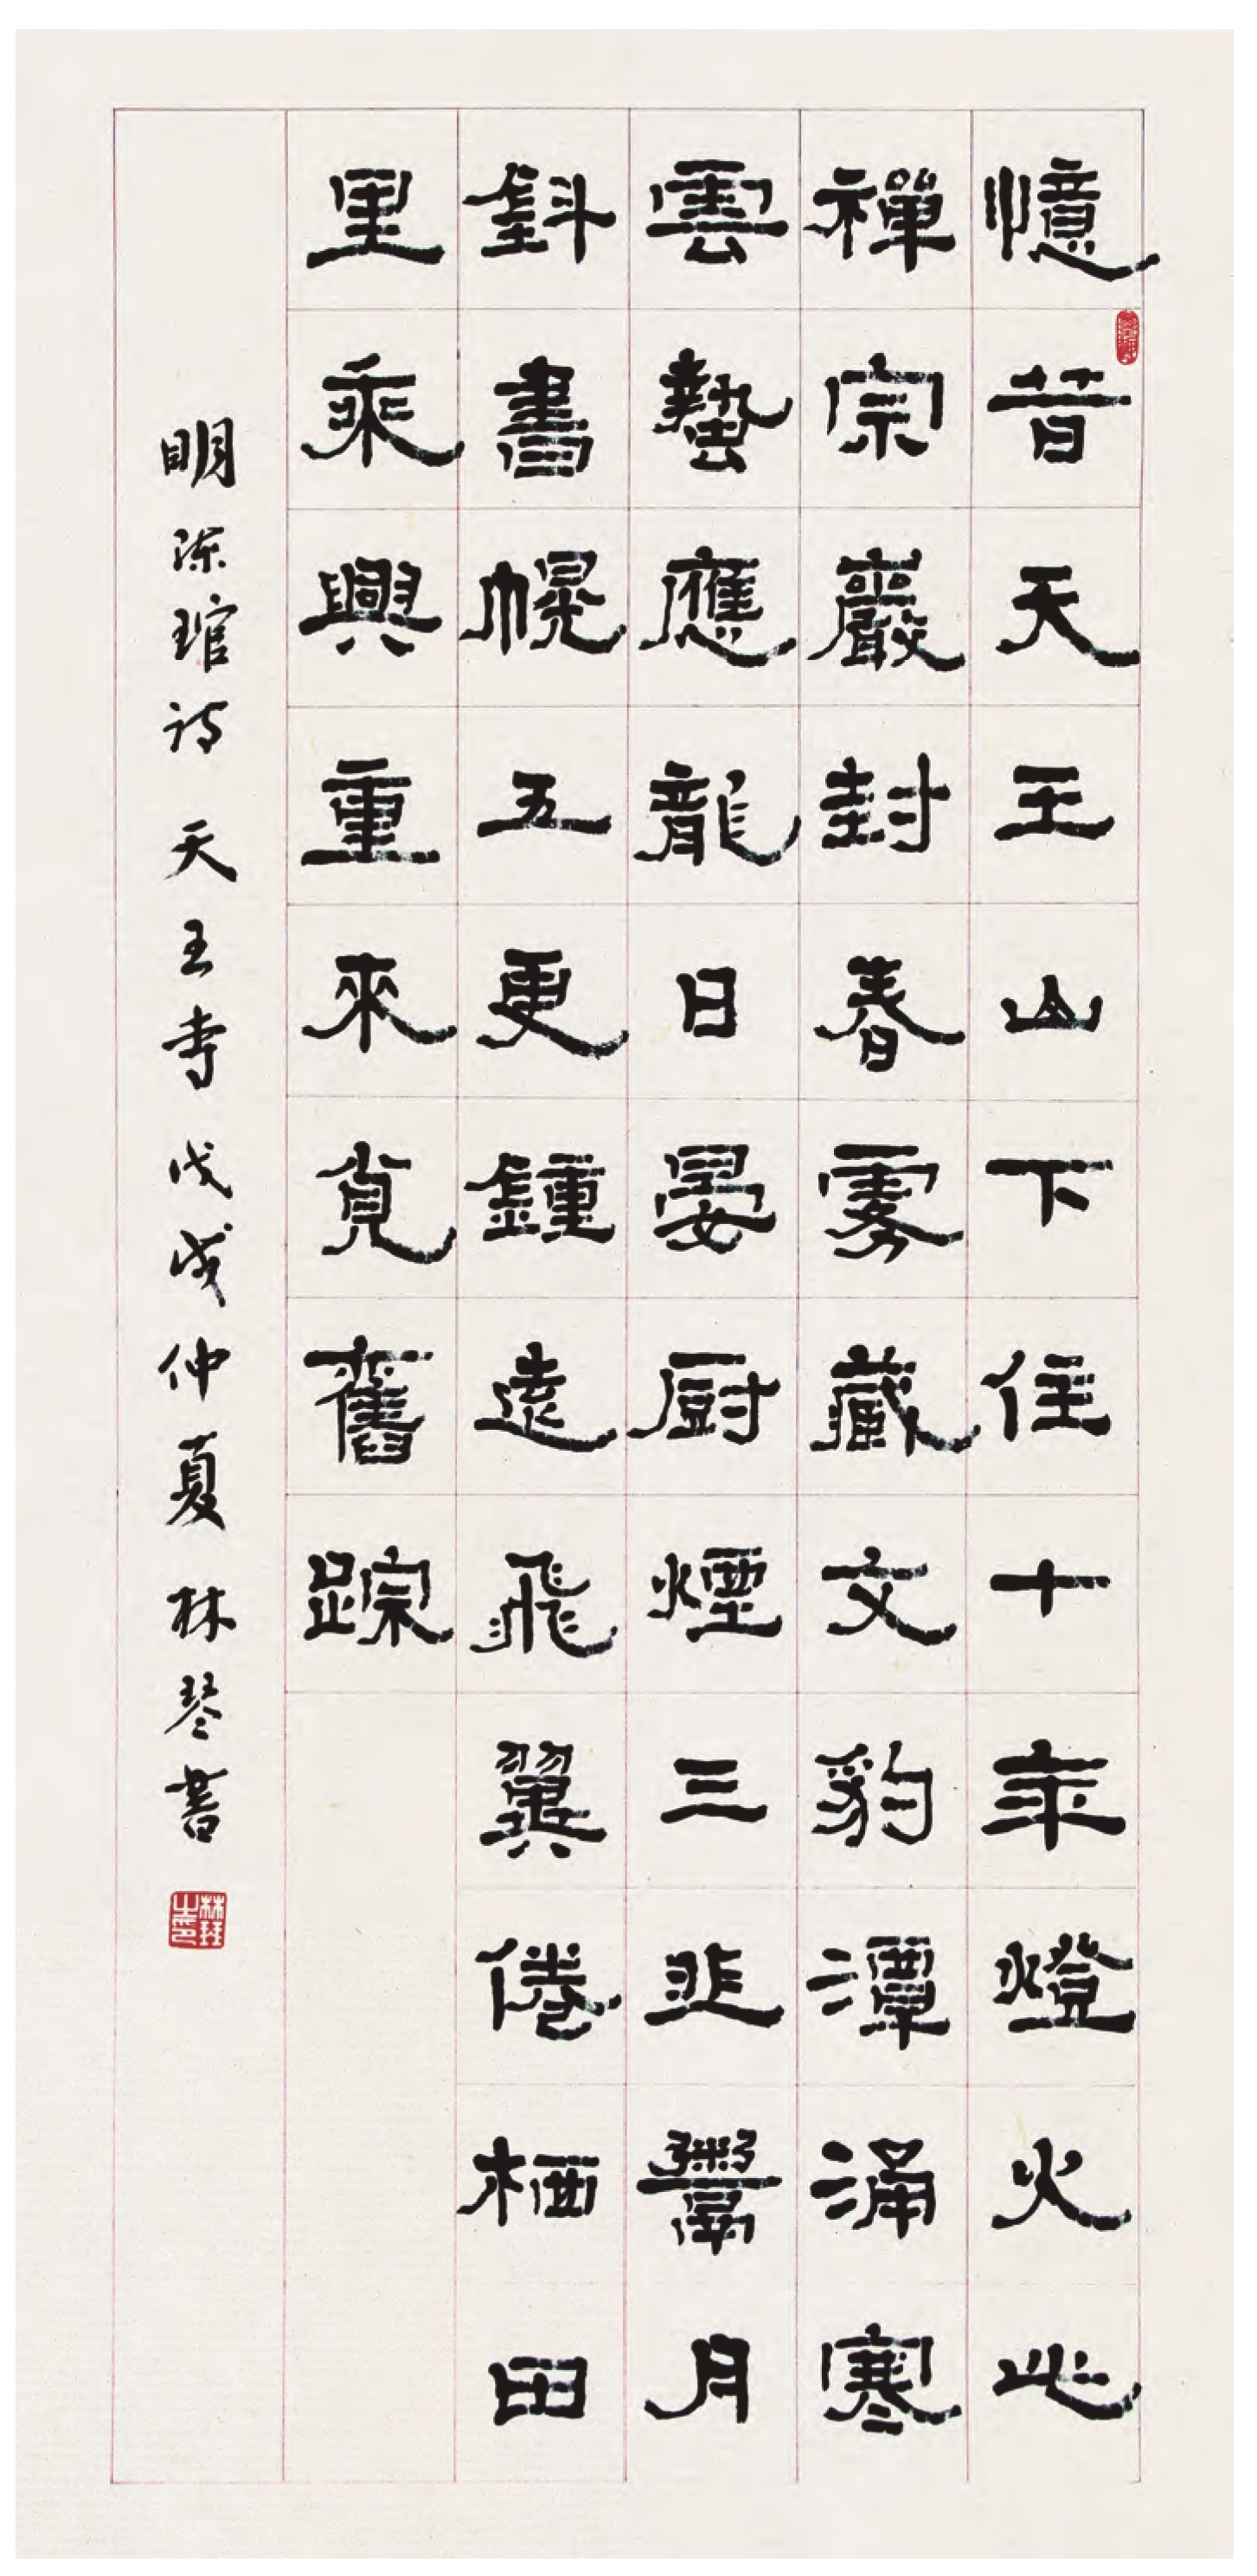 憶昔天王山下住十年燈火此
禪宗嚴封春霧藏文豹潭涌寒
雲蟄應龍日晏厨煙三韭鬻月
斜書幌五更鍾遠飛翼倦栖田
里乘興重來覓舊踪
明陈琯诗天王寺戊戌仲夏林琴書
林琴之印